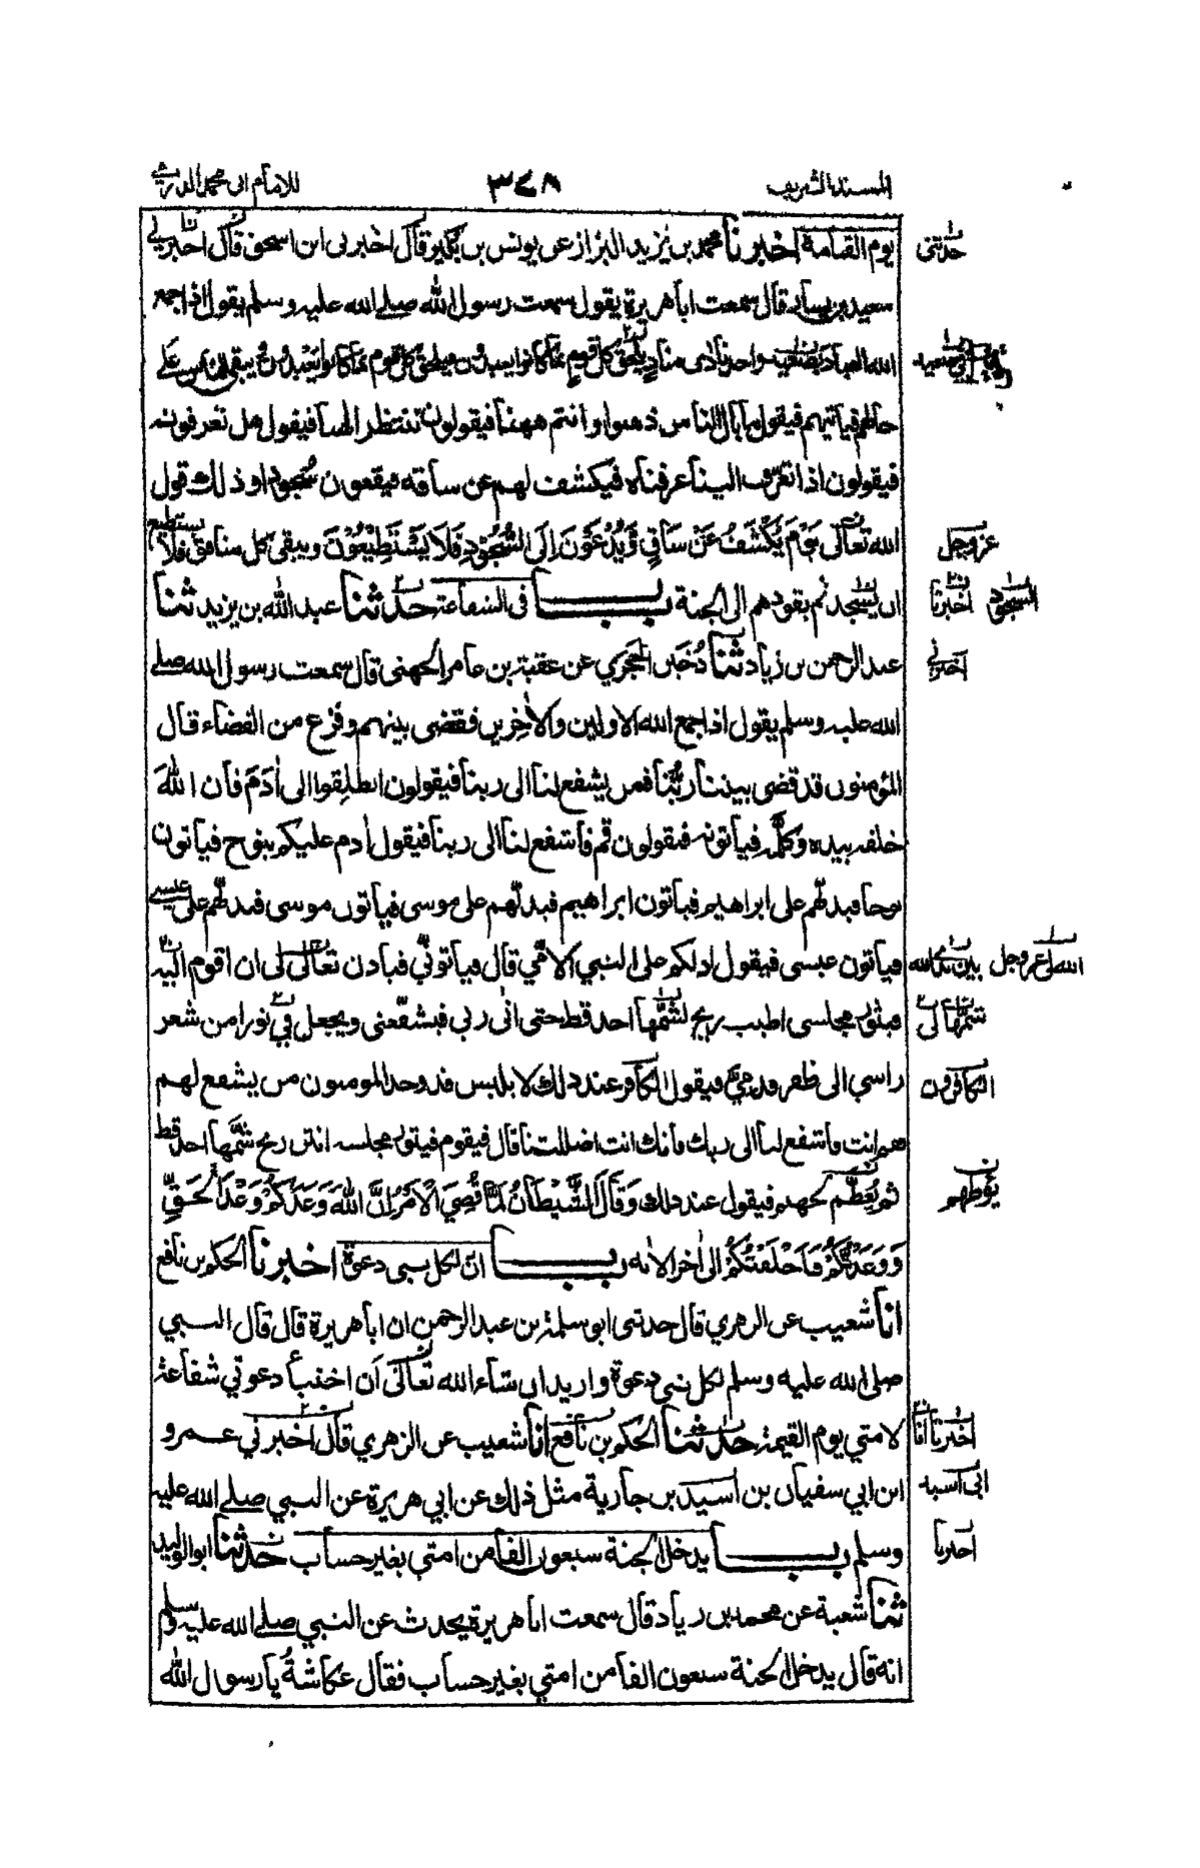 المسند الشريف ٣٤٨ للامام ابى محمد الدارمي
يوم القيامة اخبرنا محمد بن يزيد البزاز عن يونس بن بكير قال اخبرنى ابن اسحق قال اخبرني
حدثني
سعيد بن يسار قال سمعت ابا هريرة يقول سمعت رسول الله صلى الله عليه وسلم يقول اذا جمع
الله العباد بصعيد واحد نادى مناد يلحق كل قوم بما كانوا يعبدون فيلحق كل قوم بما كانوا يعبدون ويبقى الناس على
حالهم فياتيهم فيقول ما بال الناس ذهبوا وانتم ههنا فيقولون ننتظر الهنا فيقول هل تعرفونه
فيقولون اذا تعرف الينا عرفناه فيكشف لهم عن ساقه فيقعون سجودا وذلك قول
الله تعالى يَوْمَ يُكْشَفُ عَنْ سَاقٍ وَّيُدْعَوْنَ اِلَى السُّجُوْدِ فَلَا يَسْتَطِيْعُوْنَ ويبقى كل منافق فلا يستطيع
عز وجل
ان يسجد ثم يقودهم الى الجنة باب فى الشفاعة حدثنا عبد الله بن يزيد ثنا
اخبرنا السجود
عبد الرحمن بن زياد ثنا دُخَين الحَجري عن عقبة بن عامر الجهنى قال سمعت رسول الله صلى
اخبرني
الله عليه وسلم يقول اذا جمع الله الاولين والاٰخرين فقضى بينهم وفرغ من القضاء قال
المؤمنون قد قضى بيننا ربُّنا فمن يشفع لنا الى ربنا فيقولون انطلِقوا الى اٰدَمَ فان اللهَ
خلقه بيده وكلَّمه فياتونه فيقولون قم فاشفع لنا الى ربنا فيقول اٰدم عليكم بنوح فياتون
نوحا فيدلّهم على ابراهيم فياتون ابراهيم فيدلّهم على موسى فياتون موسى فيدلّهم على عيسى
فياتون عيسى فيقول ادلكم على النبي الامّي قال فياتونّي فياذن تعالى لى ان اقوم اليه
الله عز وجل بين يدي الله
فيثور مجلسى اطيب ريح شمّها احد قط حتى اٰتى ربى فيشفّعنى ويجعل لي نورا من شعر
راسي الى ظفر قدمي فيقول الكافر عند ذلك لابليس قد وجد المومنون من يشفع لهم
الكافرون
فقم انت فاشفع لنا الى ربك فانك انت اضللتنا قال فيقوم فيثور مجلسه انتن ريح شمّها احد قط
ثم يُعظَّم لجهنم فيقول عند ذلك وَقَالَ الشَّيْطَانُ لَمَّا قُضِيَ الْاَمْرُ اِنَّ اللهَ وَعَدَكُمْ وَعْدَ الْحَقِّ
وَوَعَدْتُّكُمْ فَاَخْلَفْتُكُمْ الى اٰخر الاٰية باب ان لكل نبي دعوة اخبرنا الحكم بن نافع
انا شعيب عن الزهري قال حدثنى ابو سلمة بن عبد الرحمن ان ابا هريرة قال قال النبي
صلى الله عليه وسلم لكل نبي دعوة واريد ان شاء الله تعالى اَن اختبأ دعوتي شفاعة
لامتي يوم القيمة حدثنا الحكم بن نافع انا شعيب عن الزهري قال اخبرني عمرو
اخبرنا انا
ابن ابي سفيان بن اسيد بن جارية مثل ذلك عن ابي هريرة عن النبي صلى الله عليه
ابى اسيد
وسلم باب يدخل الجنة سبعون الفا من امتي بغير حساب حدثنا ابو الوليد
اخبرنا
ثنا شعبة عن محمد بن زياد قال سمعت ابا هريرة يحدث عن النبي صلى الله عليه وسلم
انه قال يدخل الجنة سبعون الفا من امتي بغير حساب فقال عكاشةُ يا رسول الله